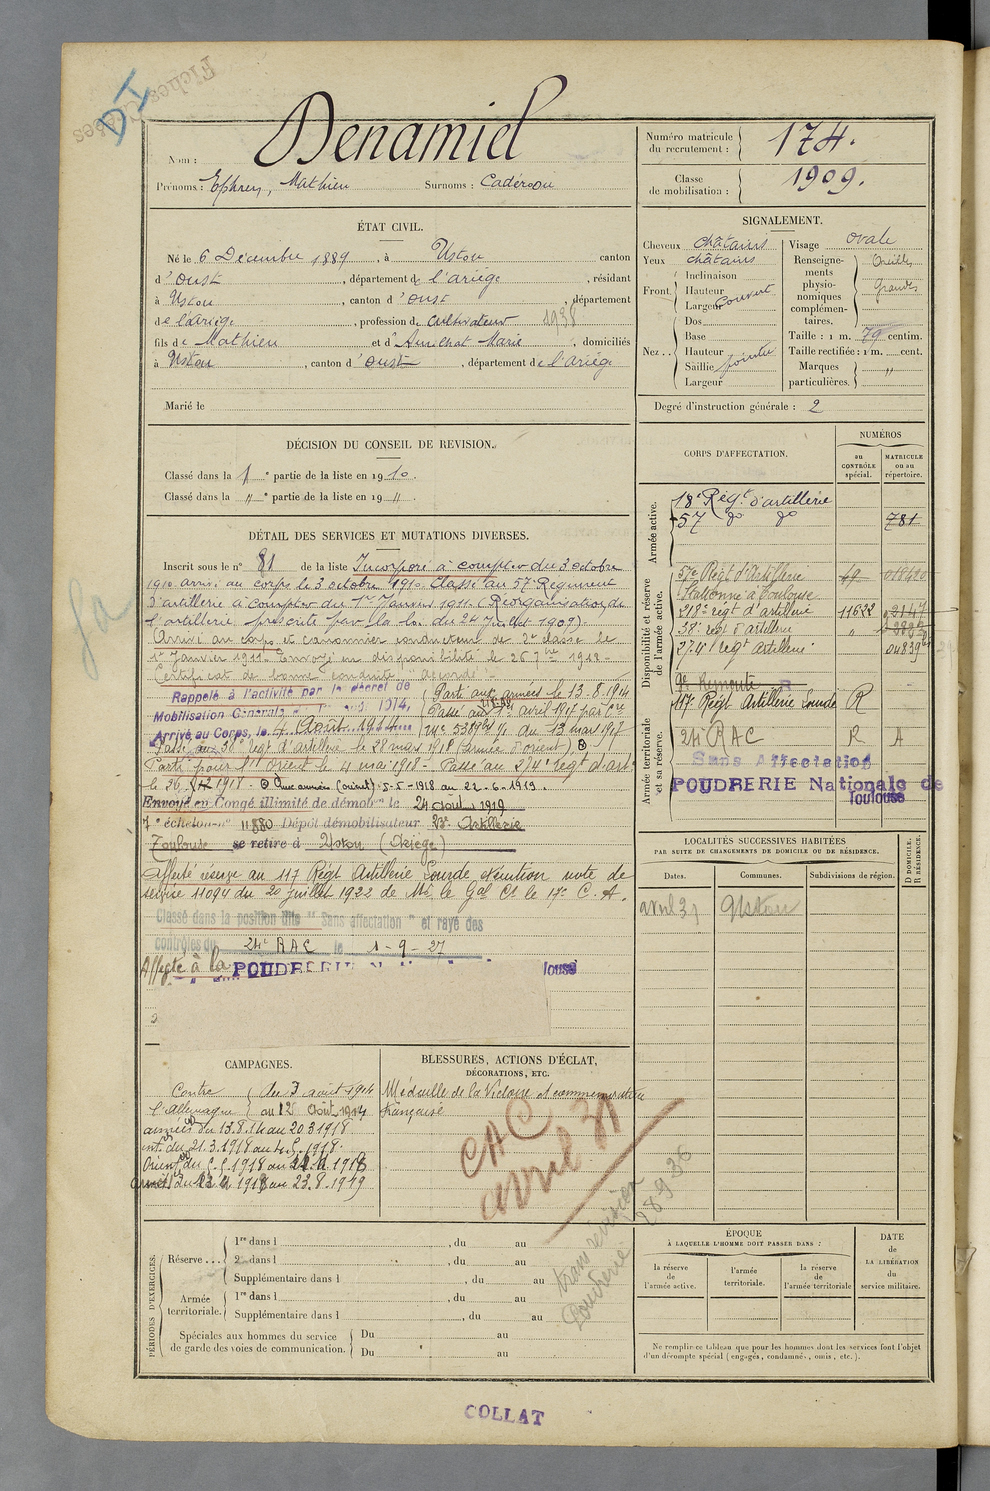 Fiches
DI
Nom : Denamiel
Prénoms : Ephrem, Mathieu Surnoms :
Numéro matricule du recrutement : 174.
Classe de mobilisation : 1909.
ÉTAT CIVIL.
Né le 6 Décembre 1889, à Ustou canton
d'Oust, département de l'ariège, résidant
à Ustou, canton d'oust, département
de l'ariège, profession de cultivateur 1938
fils de Mathieu et d' Marie, domiciliés
à Ustou, canton d'oust, département de l'ariège
Marié le
DÉCISION DU CONSEIL DE REVISION.
Classé dans la 1e partie de la liste en 1910.
Classé dans la " e partie de la liste en 19 ".
DÉTAIL DES SERVICES ET MUTATIONS DIVERSES.
Inscrit sous le n° 81 de la liste Incorporé à compter du 3 octobre
1910. arrivé au corps le 3 octobre 1910. Classé au 57e Régiment
d'artillerie à compter du 1er Janvier 1911. (Réorganisation de
l'artillerie, prescrite par la loi du 24 Juillet 1909).
Arrivé au corps et canonnier conducteur de 2e classe le
1er Janvier 1911. Envoyé en disponibilité le 26 7bre 1912.
Certificat de bonne conduite accordé.
Rappelé à l'activité par le décret de
Mobilisation Générale 1914,
Arrivé au Corps, le 4 Août 1914
Parti aux armées le 13.8.1914
Passé au 1er avril 1917 par
du 13 mars 1917
Passé au 38e régt d'artillerie le 28 mars 1918 (armée d'orient)
Parti pour l'Orient le 4 mai 1918 - Passé au 274e régt d'art
le 26 1918. aux armées (orient) 5-5-1918 au 22-6-1919.
Envoyé en Congé illimité de démob. le 24 août 1919
7e échelon n° 11880 Dépôt démobilisateur 23e Artillerie
Toulouse se retire à Ustou (Ariège)
Affecté réserve au 117 Régt Artillerie Lourde exécution note de
service 11094 du 20 juillet 1922 de Mr le Gal Ct le 17e C. A.
Classé dans la position dite "Sans affectation" et rayé des
contrôles du 24e RAC le 1-9-27
Affecté à la POUDRERIE
CAMPAGNES.
Contre l'Allemagne du 3 août 1914
au 12 Août 1914
armées du 13.8.14 au 20.3.1918
int. du 21.3.1918 au
Orient du 5.5.1918 au
au 23.8.1919
BLESSURES, ACTIONS D'ÉCLAT,
DÉCORATIONS, ETC.
Médaille de la Victoire et commémorative
française
CAC
avril 31
transmission
Poudrerie
28 9 36
PÉRIODES D'EXERCICES.
Réserve ... 1re dans l , du au
2e dans l , du au
Supplémentaire dans l , du au
Armée territoriale. 1re dans l , du au
Supplémentaire dans l , du au
Spéciales aux hommes du service
de garde des voies de communication. Du au
Du au
SIGNALEMENT.
Cheveux châtains
Yeux châtains
Front. Inclinaison
Hauteur
Largeur couvert
Nez .. Dos
Base
Hauteur
Saillie pointu
Largeur
Visage ovale
Renseignements physionomiques complémentaires. Oreilles grandes
Taille : 1 m. 79 centim.
Taille rectifiée : 1 m. cent.
Marques particulières. "
Degré d'instruction générale : 2
CORPS D'AFFECTATION.
NUMÉROS
au CONTRÔLE spécial.
MATRICULE ou au répertoire.
Armée active.
18e Régt d'artillerie
57 do do 781
Disponibilité et réserve de l'armée active.
57e Régt d'Artillerie 49
Stationné à Toulouse
218e régt d'artillerie 11622 2147
38e régt d'artillerie "
274e régt artillerie 04839
Armée territoriale et sa réserve.
117 Régt Artillerie Lourde R
24e RAC R A
Sans Affectation
POUDRERIE Nationale de
Toulouse
LOCALITÉS SUCCESSIVES HABITÉES
PAR SUITE DE CHANGEMENTS DE DOMICILE OU DE RÉSIDENCE.
Dates. Communes. Subdivisions de région. D DOMICILE. R RÉSIDENCE.
avril 31 Ustou
ÉPOQUE
À LAQUELLE L'HOMME DOIT PASSER DANS :
la réserve de l'armée active.
l'armée territoriale.
la réserve de l'armée territoriale
DATE de LA LIBÉRATION du service militaire.
Ne remplir ce tableau que pour les hommes dont les services font l'objet
d'un décompte spécial (engagés, condamnés, omis, etc.).
COLLAT